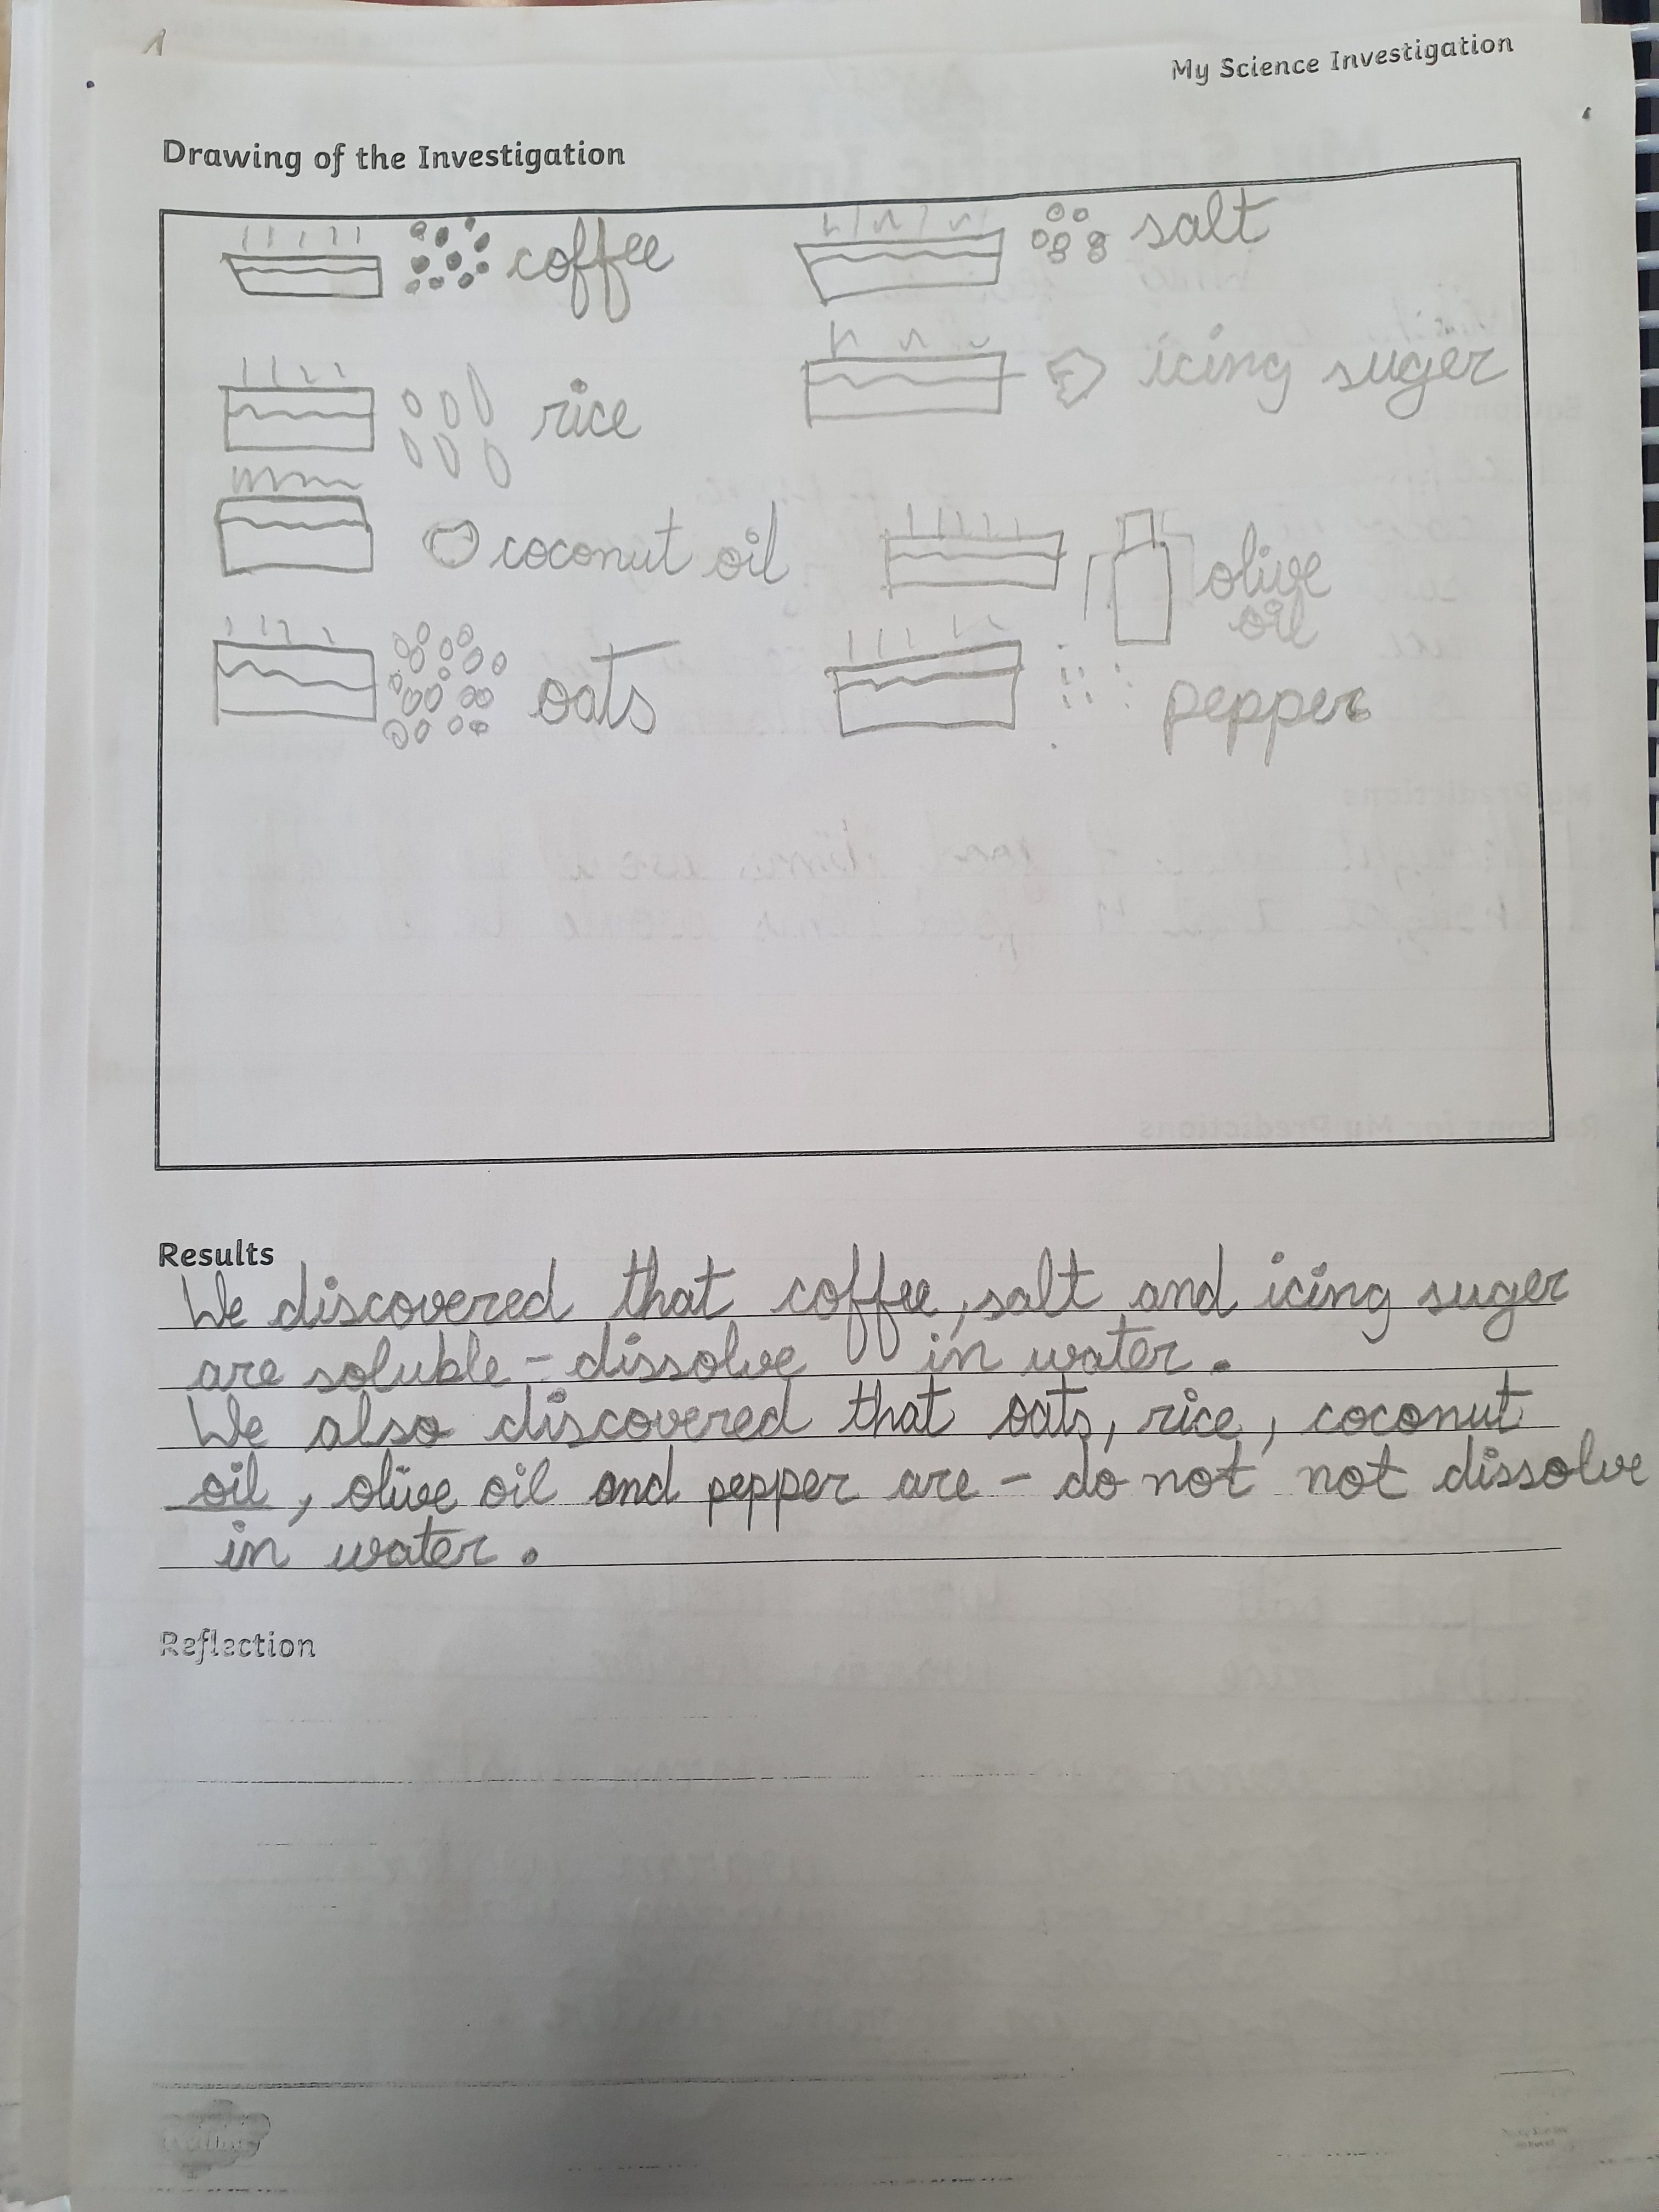 My Science Investigation
Drawing of the Investigation
coffee
salt
rice
icing suger
coconut oil
olive
oil
oats
pepper
Results
We discovered that coffee, salt and icing suger
are soluble - dissolve in water.
We also discovered that oats, rice, coconut
oil, olive oil and pepper are - do not not dissolve
in water.
Reflection